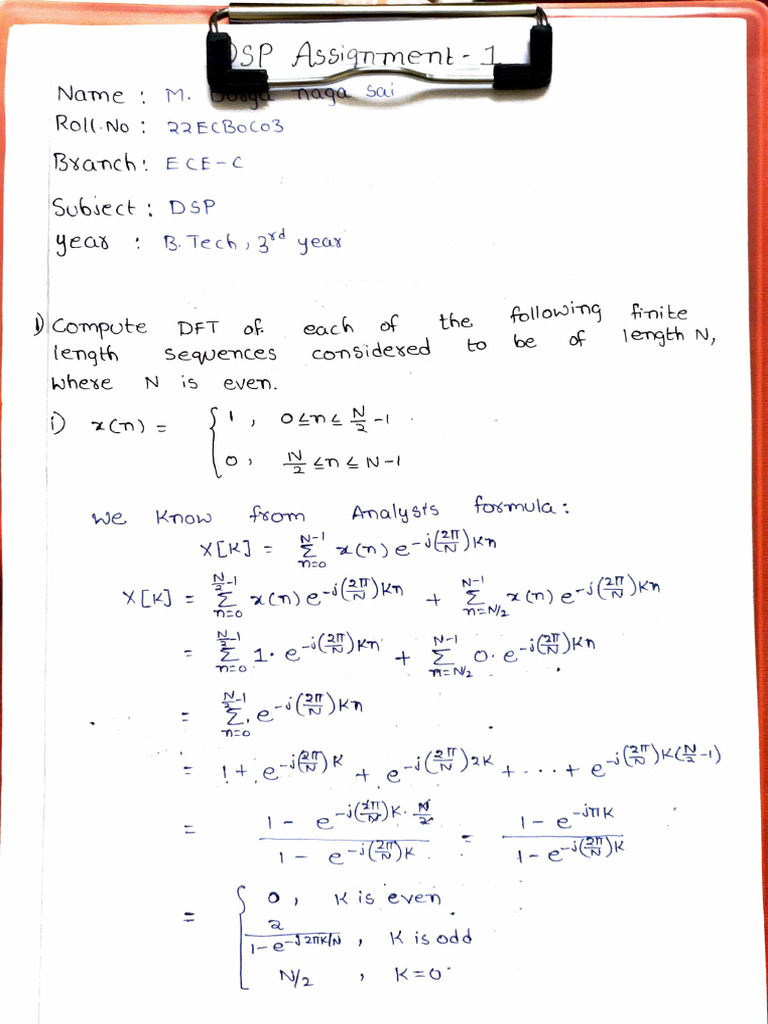 DSP Assignment - 1
Name : M. naga sai
Roll.No : 22ECB0C03
Branch : ECE-C
Subject : DSP
year : B.Tech, 3rd year
1) Compute DFT of each of the following finite
length sequences considered to be of length N,
where N is even.
i) x(n) = { 1 , 0≤n≤ N/2 -1
0 , N/2 ≤n≤ N-1
we know from Analysis formula:
X[K] = Σ_{n=0}^{N-1} x(n) e^{-j(2π/N)Kn}
X[K] = Σ_{n=0}^{N/2-1} x(n) e^{-j(2π/N)Kn} + Σ_{n=N/2}^{N-1} x(n) e^{-j(2π/N)Kn}
= Σ_{n=0}^{N/2-1} 1· e^{-j(2π/N)Kn} + Σ_{n=N/2}^{N-1} 0· e^{-j(2π/N)Kn}
= Σ_{n=0}^{N/2-1} e^{-j(2π/N)Kn}
= 1 + e^{-j(2π/N)K} + e^{-j(2π/N)2K} + ··· + e^{-j(2π/N)K(N/2-1)}
= (1 - e^{-j(2π/N)K·N/2}) / (1 - e^{-j(2π/N)K}) = (1 - e^{-jπK}) / (1 - e^{-j(2π/N)K})
= { 0 , K is even
2 / (1-e^{-j2πK/N}) , K is odd
N/2 , K=0